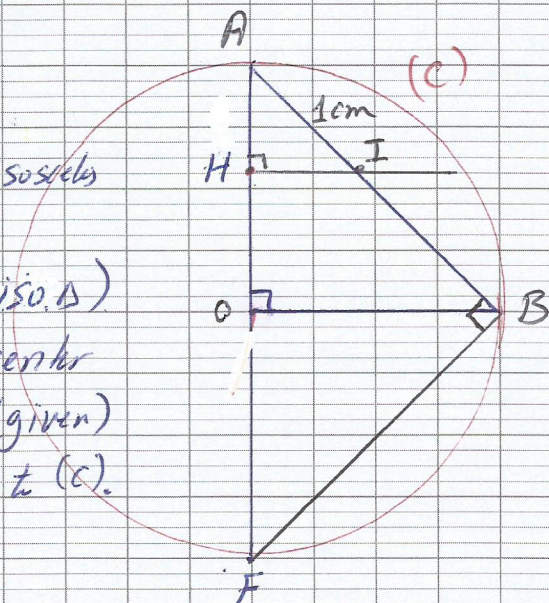 A
(C)
1cm
I
H
soscels
iso.Δ)
O
B
enter
given)
to (C).
F